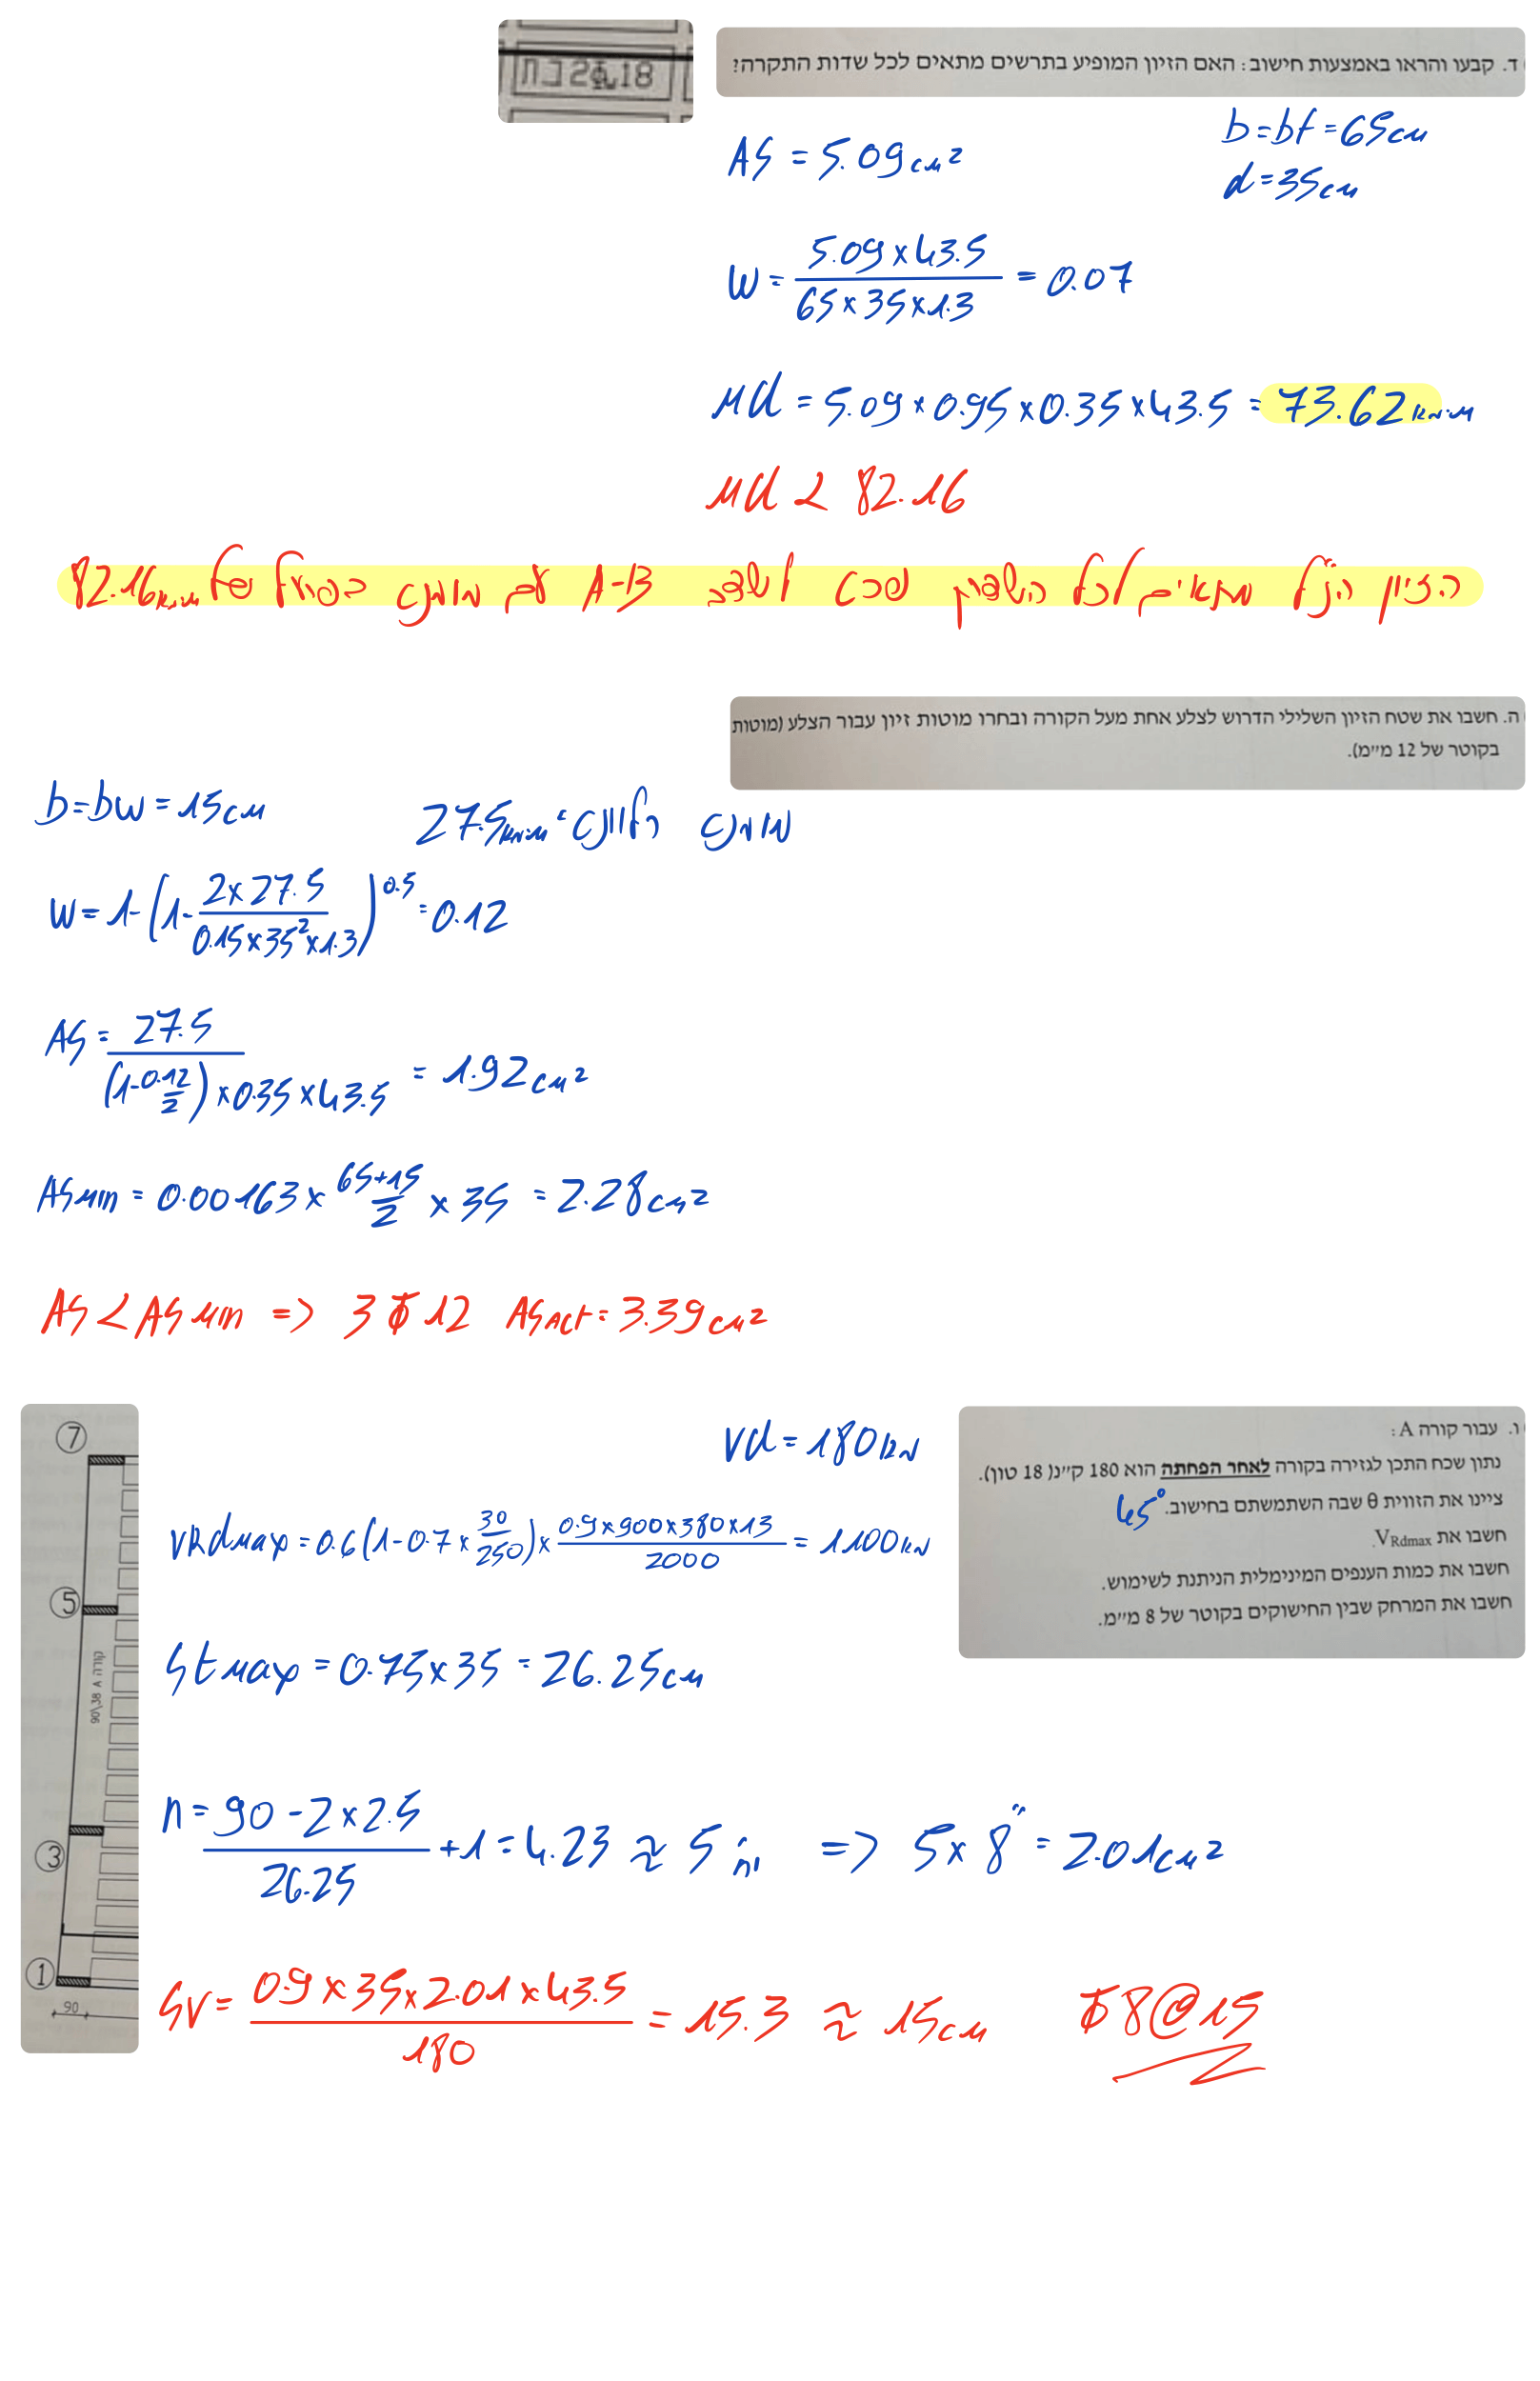 ד. קבעו והראו באמצעות חישוב: האם הזיון המופיע בתרשים מתאים לכל שדות התקרה?
2Φ18 בת
b=bf=65cm
d=35cm
AS = 5.09cm²
W = \frac{5.09×43.5}{65×35×1.3} = 0.07
Md = 5.09×0.95×0.35×43.5 = 73.62 קנ.מ
Md < 82.16
הזיון הנ"ל מתאים לכל השדות פרט לשדה A-B עם מומנט בפועל של 82.16 קנ.מ
ה. חשבו את שטח הזיון השלילי הדרוש לצלע אחת מעל הקורה ובחרו מוטות זיון עבור הצלע (מוטות
בקוטר של 12 מ"מ).
b=bw=15cm
מומנט רלוונטי 27.5 קנ.מ
W=1-(1-\frac{2×27.5}{0.15×35²×1.3})^{0.5}=0.12
AS=\frac{27.5}{(1-\frac{0.12}{2})×0.35×43.5} = 1.92cm²
ASmin = 0.00163×\frac{65+15}{2}×35 = 2.28cm²
AS<ASmin => 3Φ12 ASact=3.39cm²
ו. עבור קורה A:
נתון שכח התכן לגזירה בקורה לאחר הפחתה הוא 180 ק"נ (18 טון).
ציינו את הזווית θ שבה השתמשתם בחישוב. 45°
חשבו את VRdmax.
חשבו את כמות הענפים המינימלית הניתנת לשימוש.
חשבו את המרחק שבין החישוקים בקוטר של 8 מ"מ.
Vd=180 קנ
VRdmax=0.6(1-0.7×\frac{30}{250})×\frac{0.9×900×380×13}{2000}=1100 קנ
Stmax=0.75×35=26.25cm
n=\frac{90-2×2.5}{26.25}+1=4.23≈5 => 5×8"=2.01cm²
SV=\frac{0.9×35×2.01×43.5}{180}=15.3≈15cm Φ8@15
7
5
קורה A 90\38
3
1
90